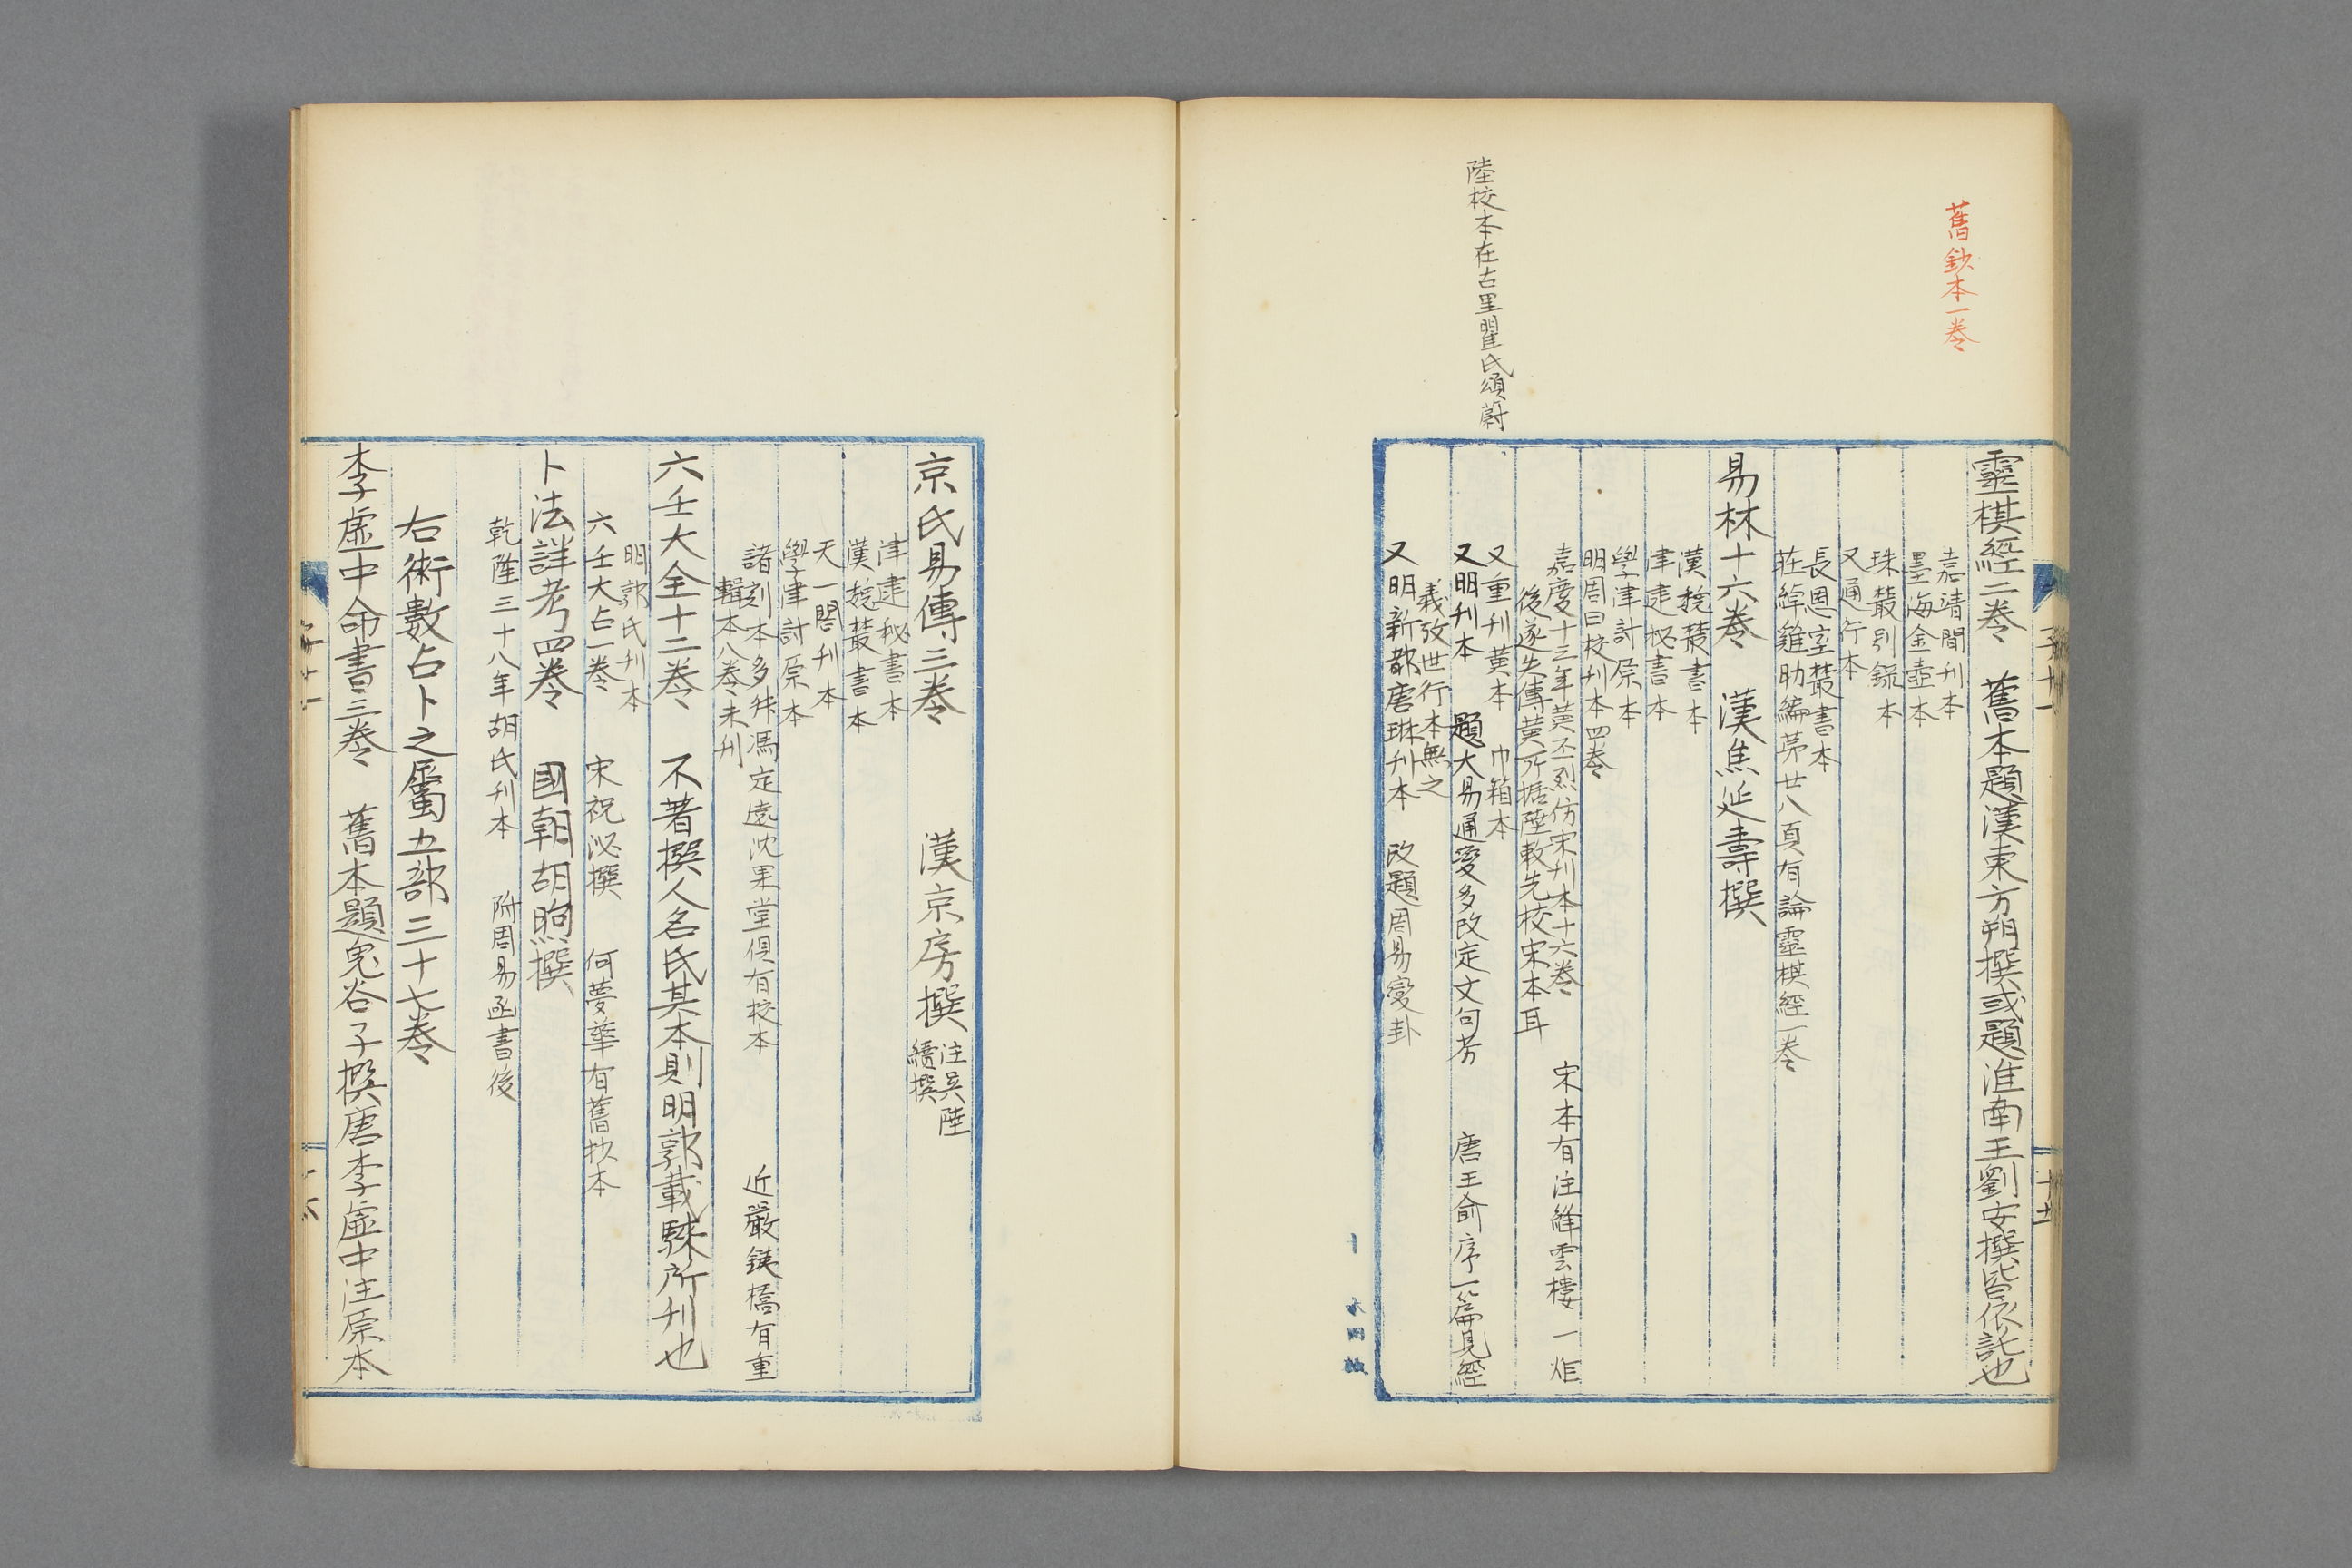 舊鈔本一卷
靈棋經二卷　舊本題漢東方朔撰或題淮南王劉安撰皆依託也
嘉靖間刊本
墨海金壺本
珠叢別錄本
又通行本
長恩室叢書本
莊綽雞肋編苐廿八頁有論靈棋經一卷
易林十六卷　漢焦延壽撰
漢魏叢書本
津逮秘書本
學津討原本
明周曰校刊本四卷
嘉慶十三年黃丕烈仿宋刊本十六卷　宋本有注絳雲樓一炬
後遂失傳黃所據陸敕先校宋本耳
陸校本在古里瞿氏頌蔚
又重刊黃本　巾箱本
又明刊本　題大易通變多改定文句芳　唐王俞序一篇見經
義攷世行本無之
又明新都唐琳刊本　改題周易變卦
京氏易傳三卷　漢京房撰　注吳陸
績撰
津逮秘書本
漢魏叢書本
天一閣刊本
學津討原本
諸刻本多舛馮定遠沈果堂俱有校本　近嚴鐵橋有重
輯本八卷未刊
六壬大全十二卷　不著撰人名氏其本則明郭載騋所刊也
明郭氏刊本
六壬大占一卷　宋祝泌撰　何夢華有舊抄本
卜法詳考四卷　國朝胡煦撰
乾隆三十八年胡氏刊本　附周易函書後
右術數占卜之屬五部三十七卷
李虛中命書三卷　舊本題鬼谷子撰唐李虛中注原本